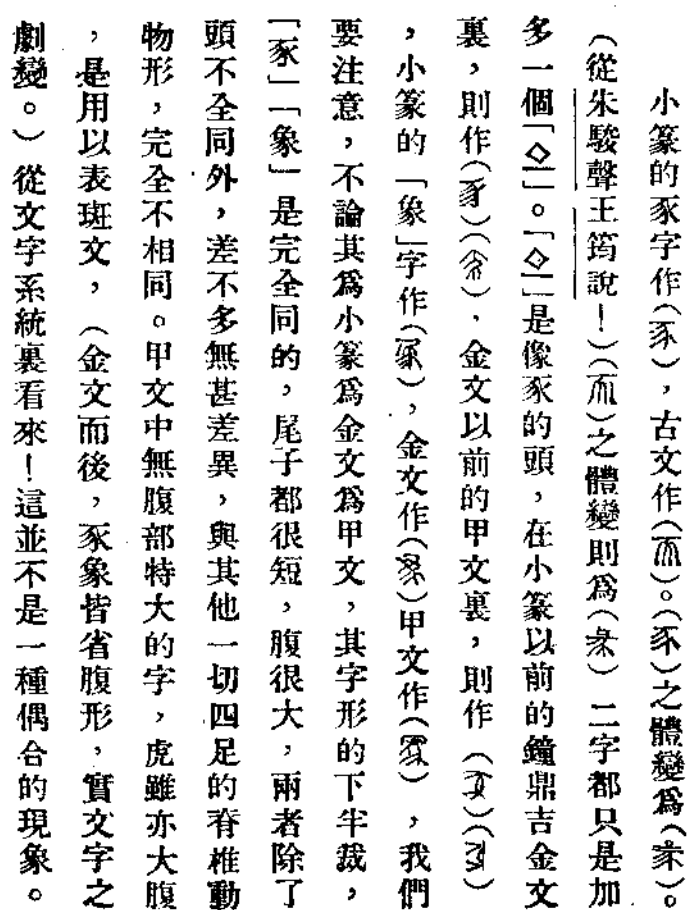 小篆的豕字作（），古文作（）。（）之體變爲（）。
（從朱駿聲王筠說！）（）之體變則爲（） 二字都只是加
多一個「◇」。「◇」是像豕的頭，在小篆以前的鐘鼎吉金文
裏，則作（）（），金文以前的甲文裏，則作（）（）
，小篆的「象」字作（），金文作（）甲文作（），我們
要注意，不論其爲小篆爲金文爲甲文，其字形的下半裁，
「豕」「象」是完全同的，尾子都很短，腹很大，兩者除了
頭不全同外，差不多無甚差異，與其他一切四足的脊椎動
物形，完全不相同。甲文中無腹部特大的字，虎雖亦大腹
，是用以表斑文，（金文而後，豕象皆省腹形，實文字之
劇變。）從文字系統裏看來！這並不是一種偶合的現象。